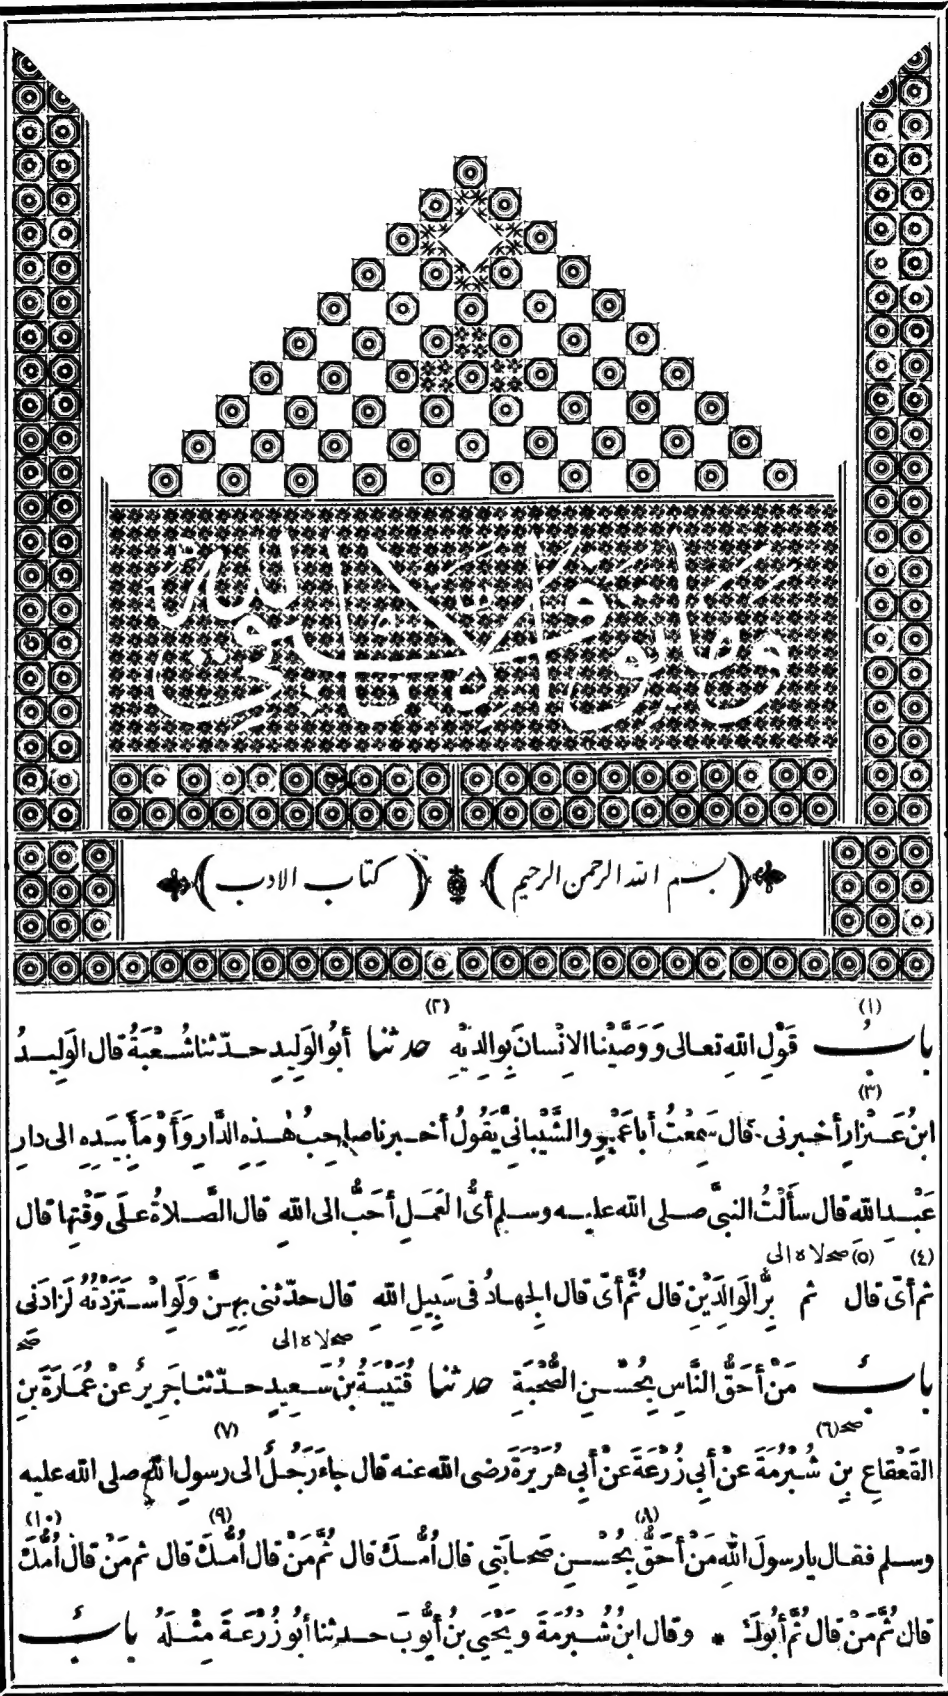 وما توفيقي الا بالله
(بسم الله الرحمن الرحيم) (كتاب الادب)
(١) (٢)
بابُ قَوْلِ اللهِ تعالى وَوَصَّيْنا الاِنْسانَ بِوالِدَيْهِ حدثنا أَبُو الوَلِيدِ حدّثنا شُعْبَةُ قال الوَلِيدُ
(٣)
ابنُ عَيْزارٍ أخبرنى قال سَمِعْتُ أَبا عَمْرٍو الشَّيْبانِىَّ يَقُولُ أخبرنا صاحِبُ هٰذِهِ الدَّارِ وَأَوْمَأَ بِيَدِهِ الى دارِ
عَبْدِ اللهِ قال سَأَلْتُ النبىَّ صلى الله عليه وسلم أَىُّ العَمَلِ أَحَبُّ الى اللهِ قال الصَّلاةُ علَى وَقْتِها قال
(٤) (٥) صح لاه الى
ثم أَىّ قال ثم بِرُّ الوَالِدَيْنِ قال ثُمَّ أَىّ قال الجِهادُ فى سَبِيلِ اللهِ قال حدّثنى بِهِنَّ وَلَوِ اسْتَزَدْتُهُ لَزادَنِى
صح لاه الى صح
بابُ مَنْ أَحَقُّ النَّاسِ بِحُسْنِ الصُّحْبَةِ حدثنا قُتَيْبَةُ بنُ سَعِيدٍ حدّثنا جَرِيرٌ عن عُمَارَةَ بنِ
صح (٦) (٧)
القَعْقاعِ بنِ شُبْرُمَةَ عنْ أَبِى زُرْعَةَ عنْ أَبِى هُرَيْرَةَ رضى الله عنه قال جاءَ رَجُلٌ الى رسولِ اللهِ صلى الله عليه
(٨) (٩) (١٠)
وسلم فقال يا رسولَ اللهِ مَنْ أَحَقُّ بِحُسْنِ صَحابَتِى قال أُمُّكَ قال ثُمَّ مَنْ قال أُمُّكَ قال ثم مَنْ قال أُمُّكَ
قال ثُمَّ مَنْ قال ثُمَّ أَبُوكَ * وقال ابنُ شُبْرُمَةَ ويَحْيَى بنُ أَيُّوبَ حدثنا أَبُو زُرْعَةَ مِثْلَهُ بابُ